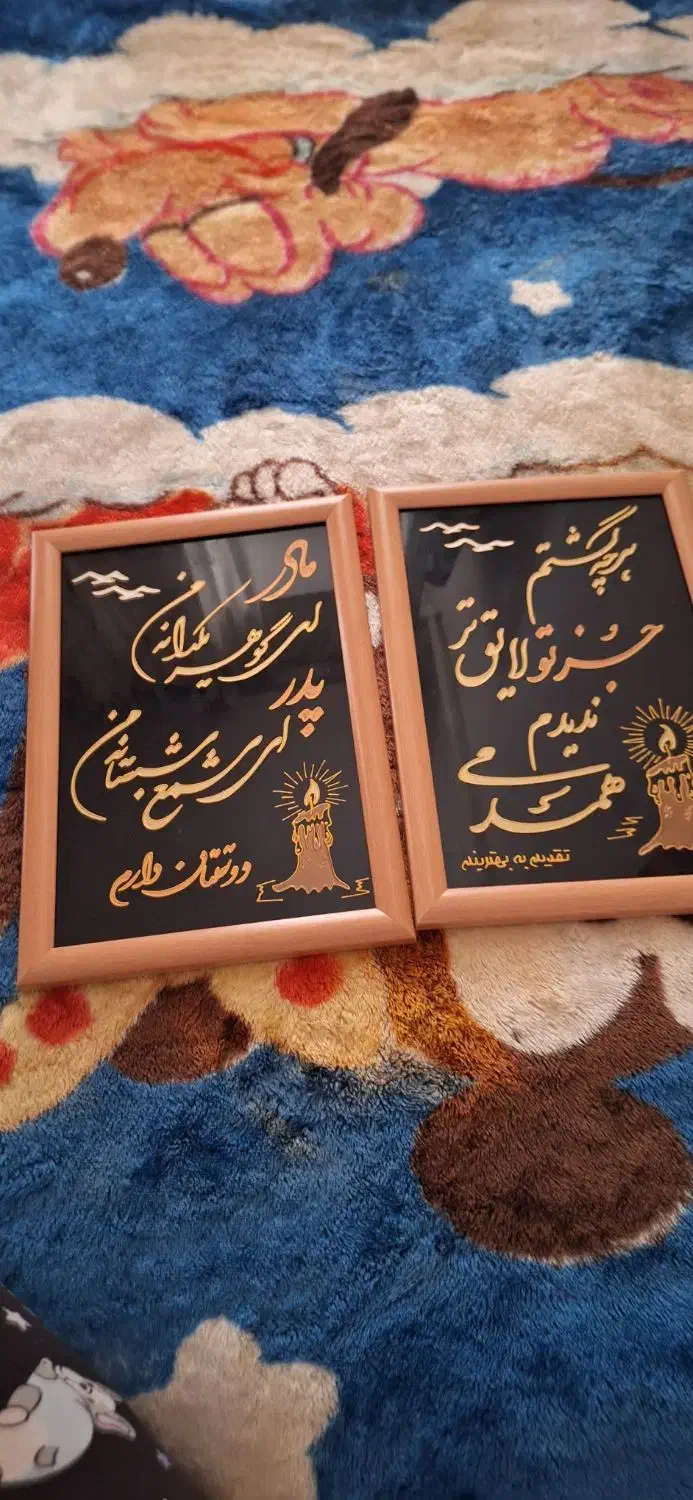 مادر
ای گوهر یکدانه من
پدر
ای شمع شبستانه من
دوستتان دارم
هرچه گشتم
جز تو لایق تر
ندیدم
همدمی
تقدیم به بهترینم